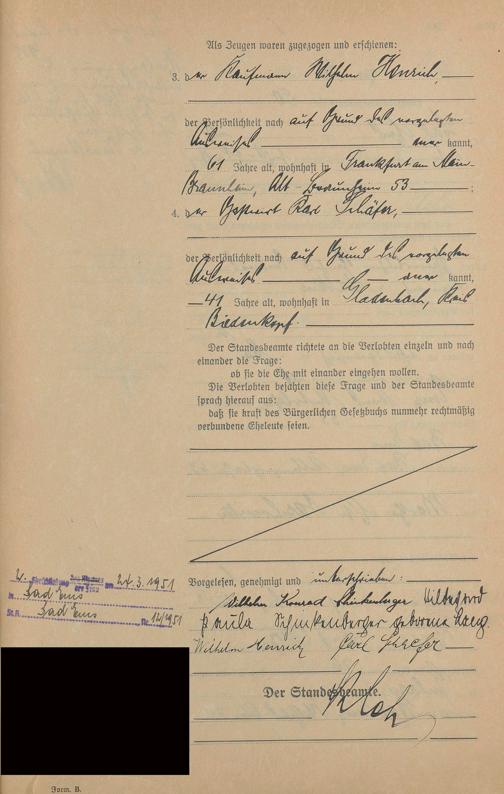 Als Zeugen waren zugezogen und erschienen:
3. der Kaufmann Wilhelm Henrich,
der Persönlichkeit nach auf Grund des vorgelegten
Ausweises anerkannt,
61 Jahre alt, wohnhaft in Frankfurt am Main-
Braunheim, Alt-Braunheim 53;
4. der Gastwirt Karl Schäfer,
der Persönlichkeit nach auf Grund des vorgelegten
Ausweises anerkannt,
41 Jahre alt, wohnhaft in Gladenbach, Kreis
Biedenkopf.
Der Standesbeamte richtete an die Verlobten einzeln und nach
einander die Frage:
ob sie die Ehe mit einander eingehen wollen.
Die Verlobten bejahten diese Frage und der Standesbeamte
sprach hierauf aus:
daß sie kraft des Bürgerlichen Gesetzbuchs nunmehr rechtmäßig
verbundene Eheleute seien.
2. Eheschließung am 24.3.1951
in Bad Ems
St.A. Bad Ems Nr. 14/1951
Vorgelesen, genehmigt und unterschrieben:
Wilhelm Konrad Schinkenberger Hildegard
Paula Schinkenberger geborene
Wilhelm Henrich Carl Schaefer
Der Standesbeamte.
Form. B.